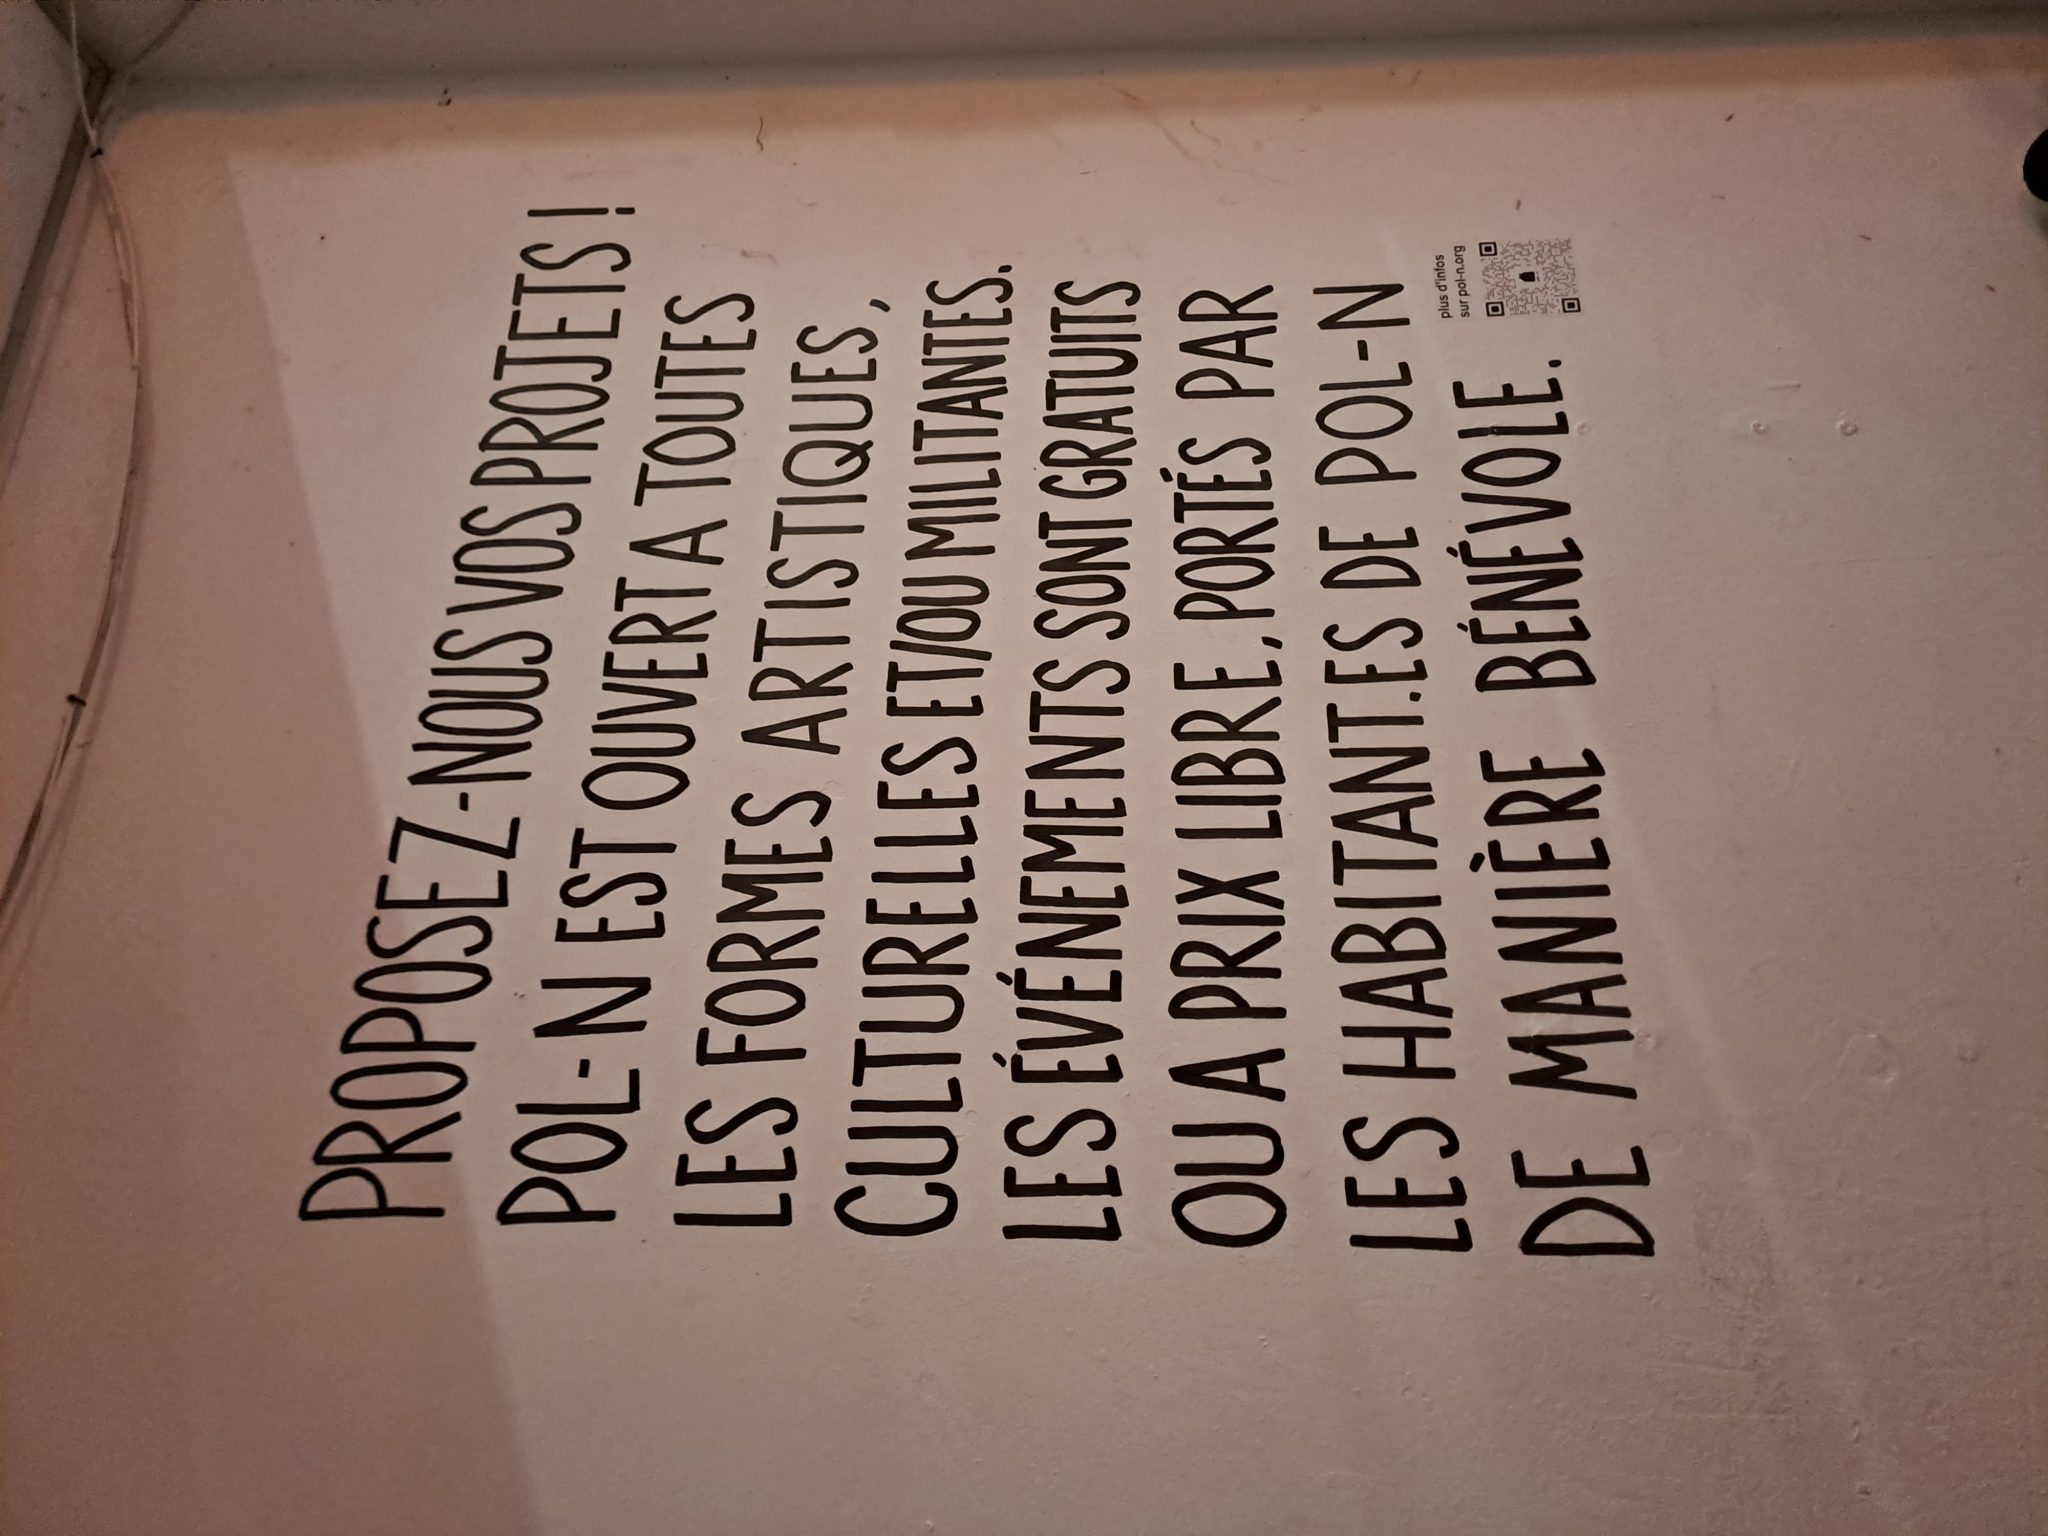 PROPOSEZ-NOUS VOS PROJETS !
POL-N EST OUVERT A TOUTES
LES FORMES ARTISTIQUES,
CULTURELLES ET/OU MILITANTES.
LES ÉVÉNEMENTS SONT GRATUITS
OU A PRIX LIBRE, PORTÉS PAR
LES HABITANT.ES DE POL-N
DE MANIÈRE BÉNÉVOLE.
plus d'infos
sur pol-n.org